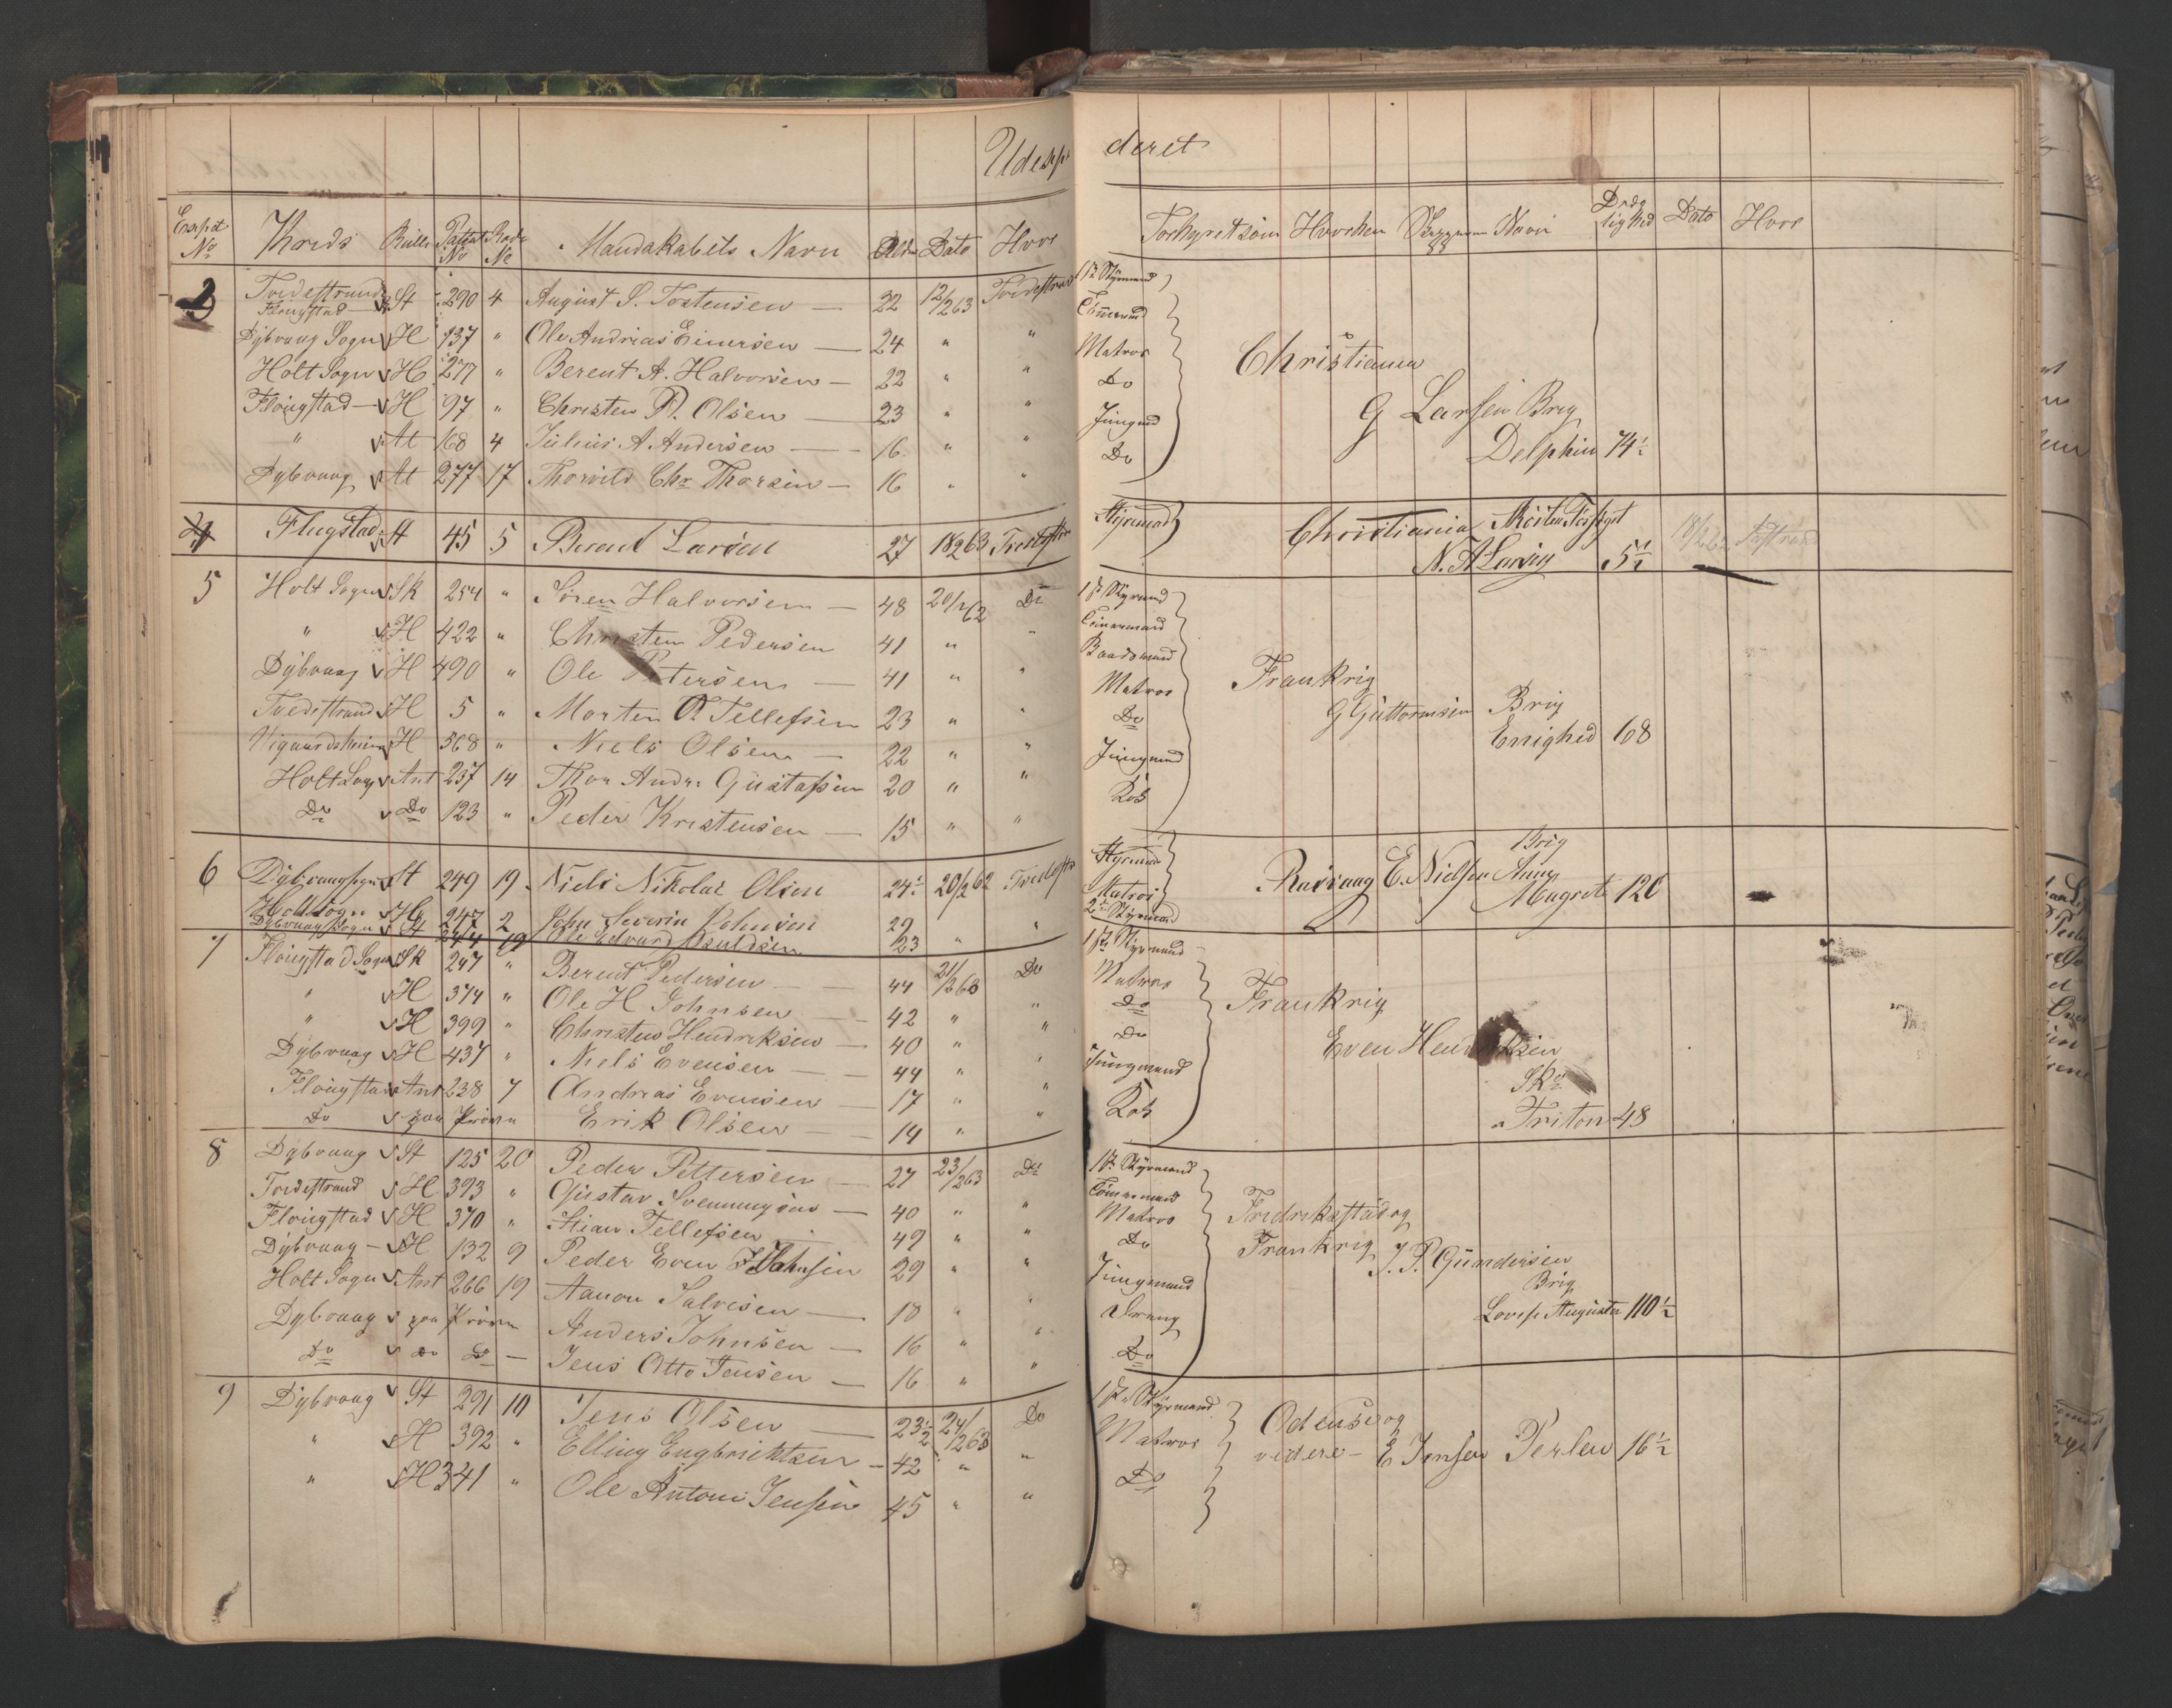 Udexpe deret
Exsped No Kreds Rulle Patent No Rode No Mandskabets Navn Alder Dato Hvor Forhyret som Hvorhen Skipperens Navn Dræg tighed Dato Hvor
3 Tvedestrand St 290 4 August S. Tostensen — 22 12/2 63 Tvedestrand 1ste Styrmand
Flougstad
Dybvaag Sogn H 137 " Ole Andreas Einersen — 24 " " Tömermand
Holt Sogn H 277 " Berent A. Halvorsen — 22 " " Matros Christiania
Flougstad — H 97 " Christen P. Olsen — 23 " " Do G Larsen Brig
" At 168 4 Julius A Andersen — 16 " " Jüngmd Delphin 74½
Dybvaag At 277 17 Thorvild Chr Thorsen — 16 " " Do
4 Flugstad St 45 5 Berent Larsen 27 18/2 63 Tvedestr Styrmand Christiania N. A Larsen 5½ 18/2 62
5 Holt Sogn Sk 254 " Sören Halvorsen — 48 20/2 62 Do 1ste Styrmand
" H 422 " Christen Pedersen 41 " " Tömermand
Dybvaag H 490 " Ole Petersen — 41 " " Baadsmand
Tvedestrand H 5 " Morten O Tellefsen 23 " " Matros Frankrig
Vigaardsheien H 568 " Niels Olsen — 22 " " Do G Guttormsen Brig
Holt Sogn Ant 237 14 Thor Andr. Gustafsen 20 " " Jüngmand Enighed 68
Do Do 123 " Peder Kristensen — 15 " " Kok
6 Dybvaagsogn St 249 19 Niels Nikolai Olsen 24½ 20/2 62 Tvedestr Styrmand Brig
Holt sogn H 247 2 John Severin Johnsen 29 Matros E. Nielsen Anne Magrete 126
Dybvaag Sogn St 244 19 Ole Edvard 23 " " 2den Styrmand
7 Flougstad Sogn Sk 247 " Berent Pedersen — 44 21/2 63 Do 1ste Styrmand
" H 374 " Ole H Johnsen — 42 " " Matros
" H 399 " Christen Hendriksen — 40 " " Do Frankrig
Dybvaag H 437 " Niels Evensen — 44 " " Do Even Hendriksen
Flougstad Ant 238 7 Andreas Evensen — 17 " " Jüngmand Sk
Do paa Pröve Erik Olsen — 14 " " Kok Triton 48
8 Dybvaag St 125 20 Peder Pettersen — 27 23/2 63 Do 1ste Styrmand
Tvedestrand H 393 " Gustav Svenningsen — 40 " " Tömermand
Flougstad H 370 " Stian Tellefsen 49 " " Matros Fredrikstad og
Dybvaag — H 132 9 Peder Even Johnsen 29 " " Do Frankrig J. P. Gundersen
Holt Sogn Ant 266 19 Aanon Salvesen — 18 " " Jüngmand Brig
Dybvaag paa Pröve Anders Johnsen — 16 " " Dreng Lovise Augusta 110½
Do Do Do — Jens Otto Jensen — 16 " " Do
9 Dybvaag St 291 10 Jens Olsen — 23½ 24/2 63 Do 1ste Styrmand Odense og
" H 392 " Elling Engbrichtsen — 42 " " Matros videre — E Jensen Perlen 16½
" H 341 " Ole Antoni Jensen 45 " " Do